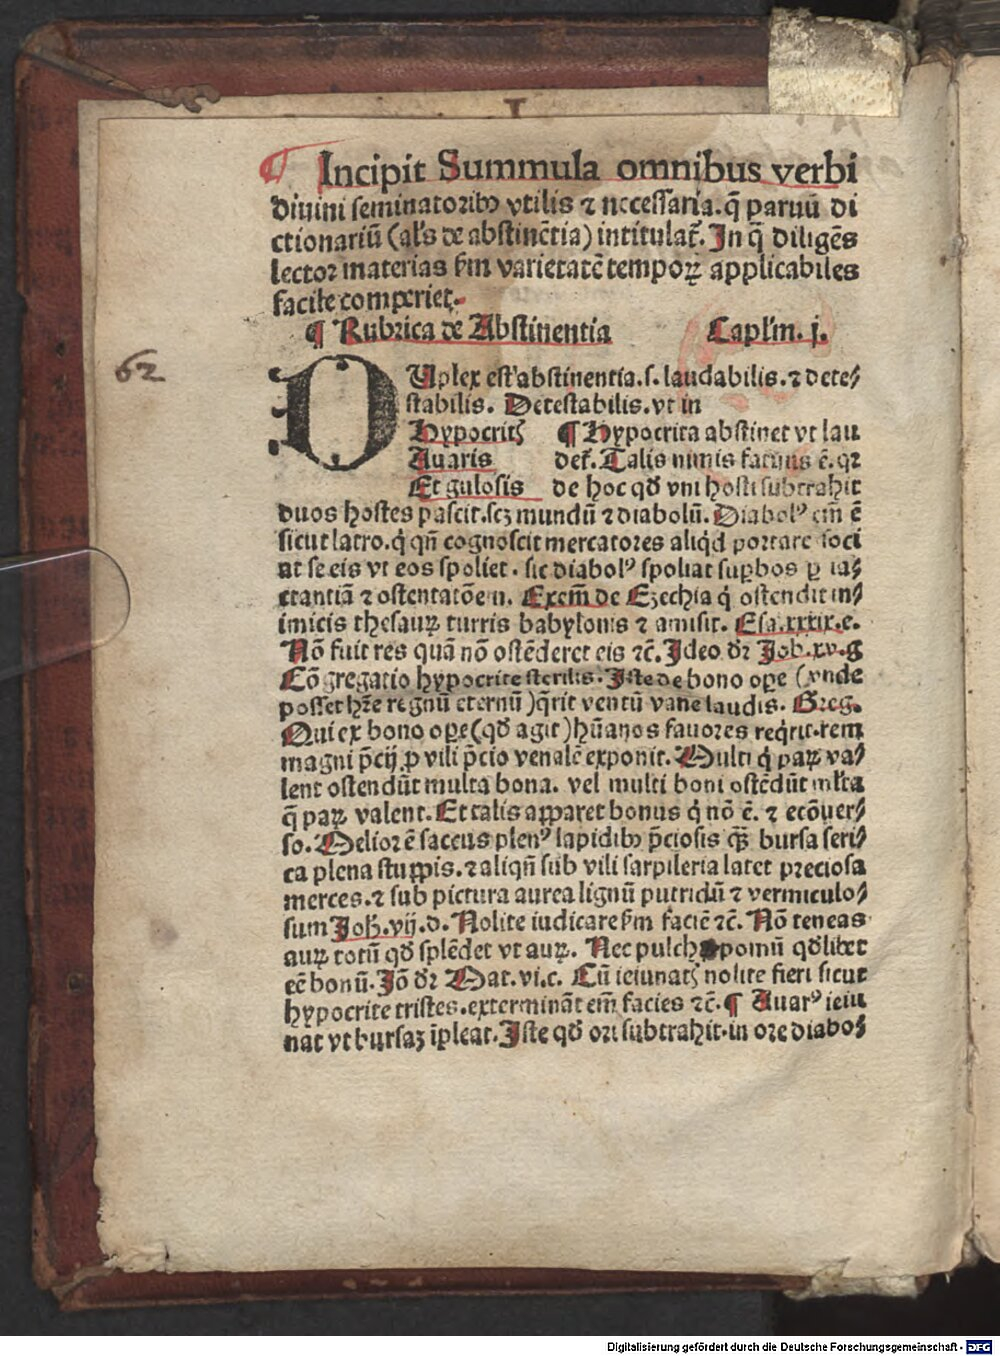 I
¶ Incipit Summula omnibus verbi
diuini seminatoribꝰ vtilis ⁊ necessaria. q̄ paruū di
ctionariū (al's de abstinētia) intitulat᷑. In q̄ diligēs
lector materias ẜm varietatē tempoꝝ applicabiles
facile comperiet.
¶ Rubrica de Abstinentia Capl'm. j.
62
DUplex est abstinentia. s. laudabilis. ⁊ dete/
stabilis. Detestabilis. vt in
Hypocritꝭ ¶ Hypocrita abstinet vt lau
Auaris det᷑. Talis nimis fatuus ē. qꝛ
Et gulosis de hoc qd̄ vni hosti subtrahit
duos hostes pascit. scꝫ mundū ⁊ diabolū. Diabolꝰ em̄ ē
sicut latro. q̇ qn̄ cognoscit mercatores aliq̇d portare soci
at se eis vt eos spoliet. sic diabolꝰ spoliat suꝑbos ꝑ ia/
ctantiā ⁊ ostentatōem. Exem̄ de Ezechia q̇ ostendit in/
imicis thesauꝝ turris babylonis ⁊ amisit. Esa. xxxix. e.
Nō fuit res quā nō ostēderet eis ⁊c̄. Ideo dꝛ Job. xv. g
Cōgregatio hypocrite sterilis. Iste de bono oꝑe (vnde
posset hr̄e regnū eternū) q̄rit ventū vane laudis. Greg.
Qui ex bono oꝑe (qd̄ agit) hūanos fauores req̇rit. rem
magni p̄cij ꝓ vili p̄cio venalē exponit. Multi q̇ paꝝ va/
lent ostendūt multa bona. vel multi boni ostēdūt ml'ta
q̄ paꝝ valent. Et talis apparet bonus q̇ nō ē. ⁊ ecōuer/
so. Melior ē saccus plenꝰ lapidibꝰ p̄ciosis q̄ꝫ bursa seri/
ca plena stuppis. ⁊ aliqn̄ sub vili sarpileria latet preciosa
merces. ⁊ sub pictura aurea lignū putridū ⁊ vermiculo/
sum Joh̄. vij. d. Nolite iudicare ẜm faciē ⁊c̄. Nō teneas
auꝝ totū qd̄ splēdet vt auꝝ. Nec pulch pomū qd̄libet
eē bonū. Jō dꝛ Mat. vi. c. Cū ieiunatꝭ nolite fieri sicut
hypocrite tristes. extermināt em̄ facies ⁊c̄. ¶ Auarꝰ ieiu
nat vt bursaꝫ īpleat. Iste qd̄ ori subtrahit. in ore diabo/
Digitalisierung gefördert durch die Deutsche Forschungsgemeinschaft - DFG